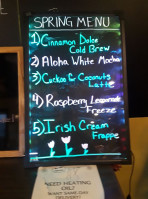 SPRING MENU
1) Cinnamon Dolce
Cold Brew
2) Aloha White Mocha
3) Cuckoo for Coconuts
Latte
4) Raspberry Lemonade
Freeze
5) Irish Cream
Frappe
NEED HEATING
ONLY